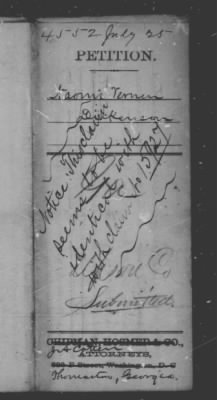 4552 July 25
PETITION.
Naomi Vernon
Dickenson
Notice - This claim
seems to be
identical with
claim No 15727
Submitted.
CHIPMAN, HOSMER & CO.,
ATTORNEYS,
Street, Washington, D. C
Thomaston, Georgia.